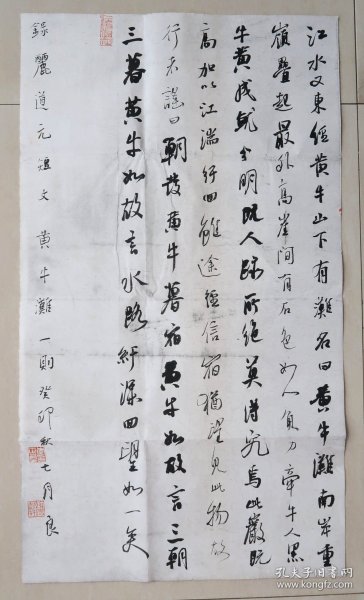 江水又東徑黃牛山下有灘名曰黃牛灘南岸重
嶺疊起最外高崖間有石色如人負刀牽牛人黑
牛黃成就分明既人跡所絕莫得究焉此巖既
高加以江湍行回雖途徑信宿猶望見此物故
行者謠曰朝發黃牛暮宿黃牛如故言三朝
三暮黃牛如故言水路紆深回望如一矣
錄酈道元短文黃牛灘一則癸卯秋七月良
孔夫子旧书网